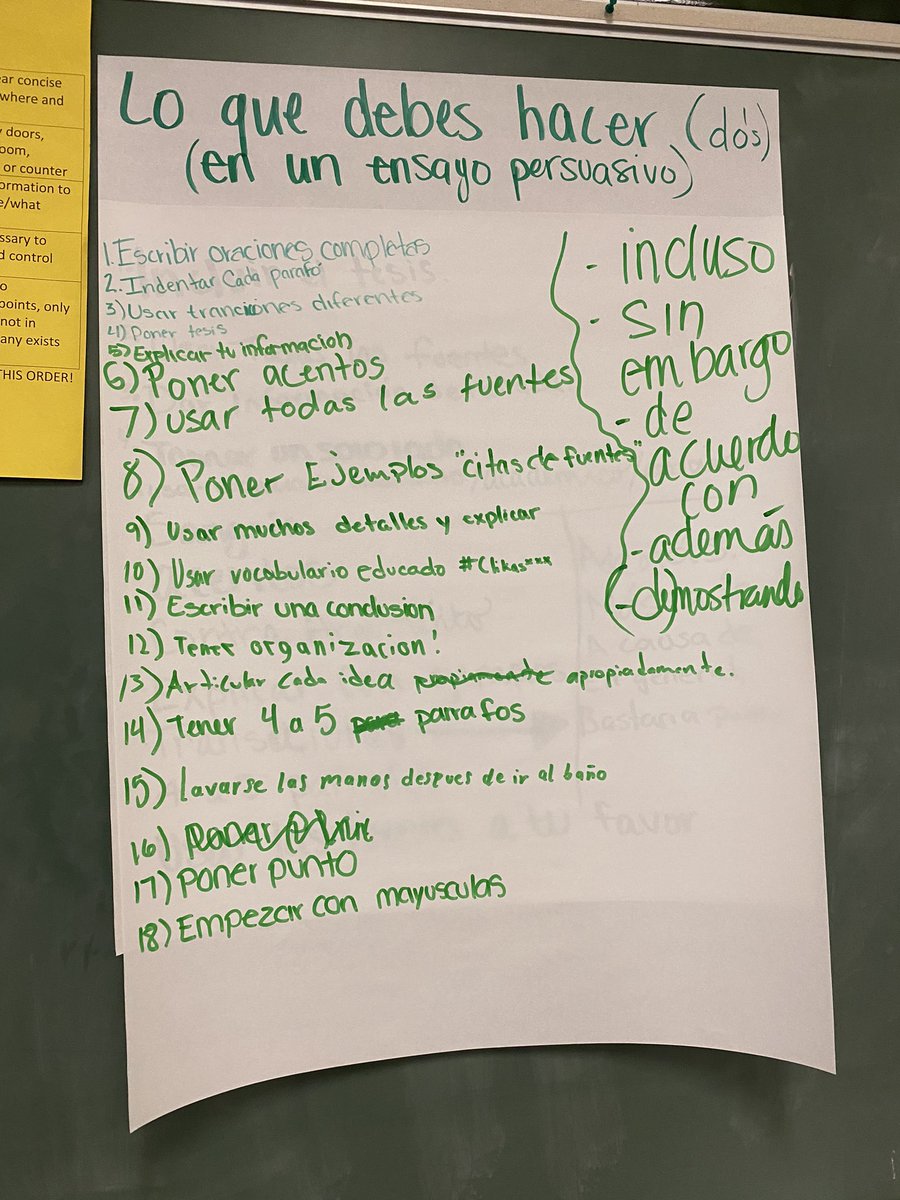 ear concise
where and
doors,
oom,
or counter
ormation to
e/what
ssary to
d control
o
points, only
not in
any exists
THIS ORDER!
Lo que debes hacer (do's)
(en un ensayo persuasivo)
1. Escribir oraciones completas
2. Indentar cada parafo
3) Usar tranciones diferentes
4) Poner tesis
5) Explicar tu informacion
6) Poner acentos
7) usar todas las fuentes
8) Poner Ejemplos "citas de fuentes"
9) Usar muchos detalles y explicar
10) Usar vocabulario educado
11) Escribir una conclusion
12) Tener organizacion!
13) Articular cada idea apropiadamente.
14) Tener 4 a 5 parrafos
15) Lavarse las manos despues de ir al baño
16)
17) Poner punto
18) Empezar con mayusculas
- incluso
- sin
embargo
- de
acuerdo
con
- además
(-de)mostrando